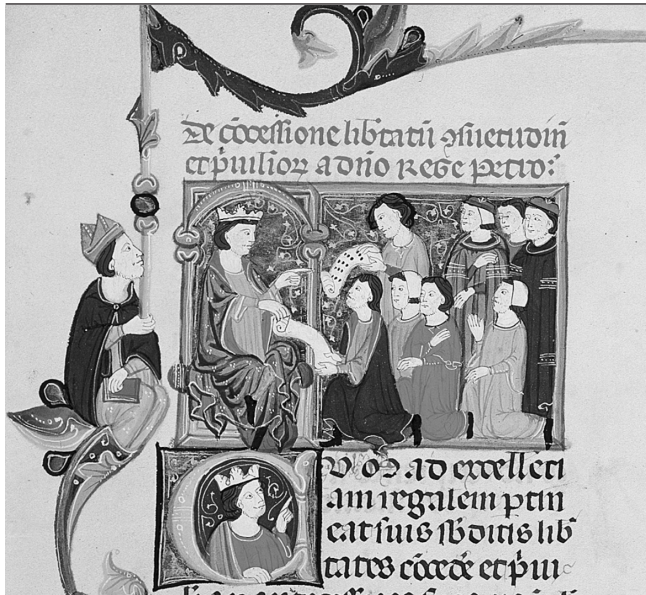 De c̄ocessione libtatū ↄsuetudin̄
et p̄uilioꝝ a dn̄o Rege petro:
Cvꝫ ad excellēti
am regalem ptin
eat suis sb̄ditis lib̄
tates c̄ocede et p̄ui